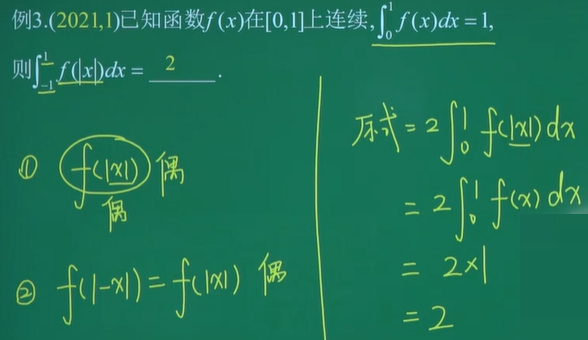 例3.(2021,1)已知函数f(x)在[0,1]上连续,∫₀¹f(x)dx=1,
则∫₋₁¹f(|x|)dx= 2 .
① f(|x|) 偶
偶
② f(|-x|)=f(|x|) 偶
原式=2∫₀¹f(|x|)dx
=2∫₀¹f(x)dx
=2×1
=2